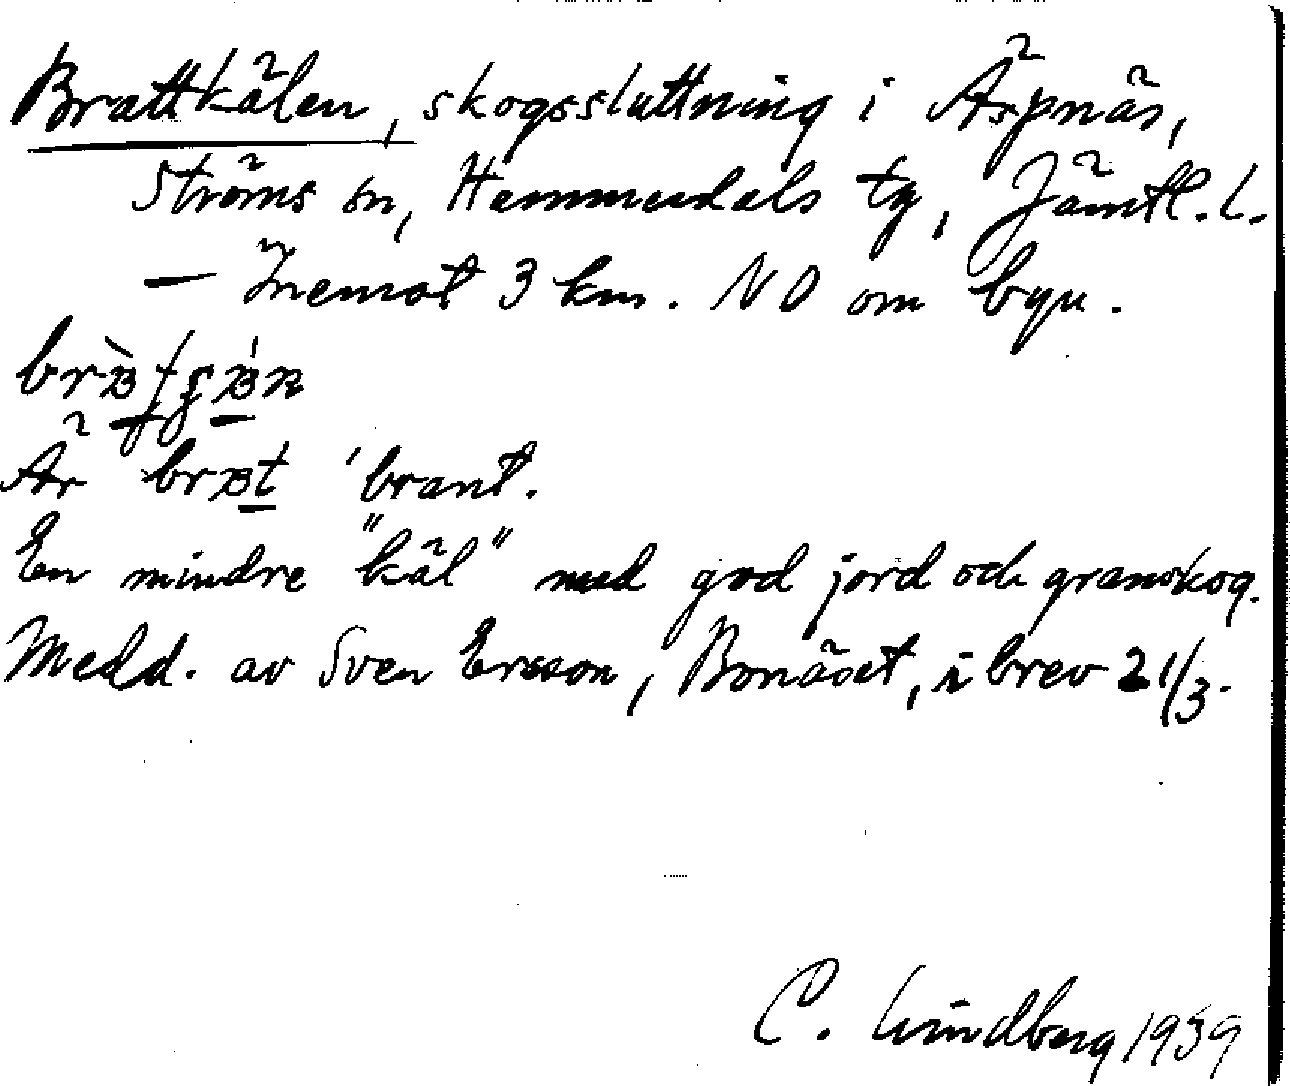 Brattkälen, skogssluttning i Äspnäs,
Ströms sn, Hammerdals tg, Jämtl. l.
— Inemot 3 km. NO om byn.
Är 'brant.
En mindre "käl" med god jord och granskog.
Medd. av Sven Ersson, Bonäset, i brev 21/3.
C. Lindberg 1939